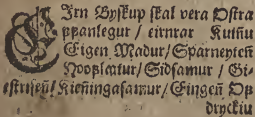 EIrn Byskup skal vera Ostra
ffanlegur / eirnrar Kuiñu
Eigen Madur / Sparneyteñ
Hooglætur / Sidsamur / Gi-
estriseñ / Kieñingasamur / Eingeñ Of
dryckiu